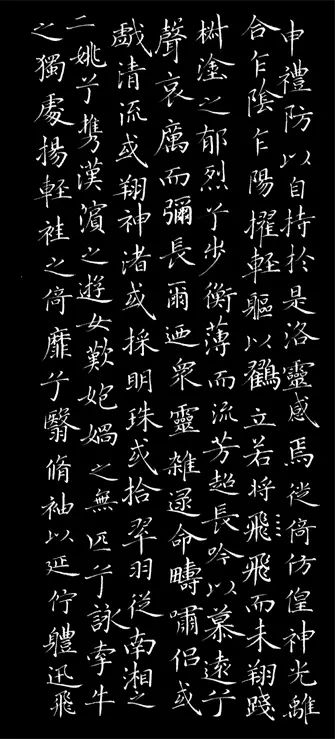 申禮防以自持於是洛靈感焉徙倚仿偟神光離
合乍陰乍陽擢輕軀以鸖立若將飛飛而未翔踐
椒塗之郁烈兮步衡薄而流芳超長吟以慕遠兮
聲哀厲而彌長爾迺眾靈雜遝命疇嘯侶或
戲清流或翔神渚或採明珠或拾翠羽從南湘之
二姚兮攜漢濱之遊女歎㚿媧之無匹兮詠牽牛
之獨處揚輕袿之倚靡兮翳脩袖以延佇軆迅飛